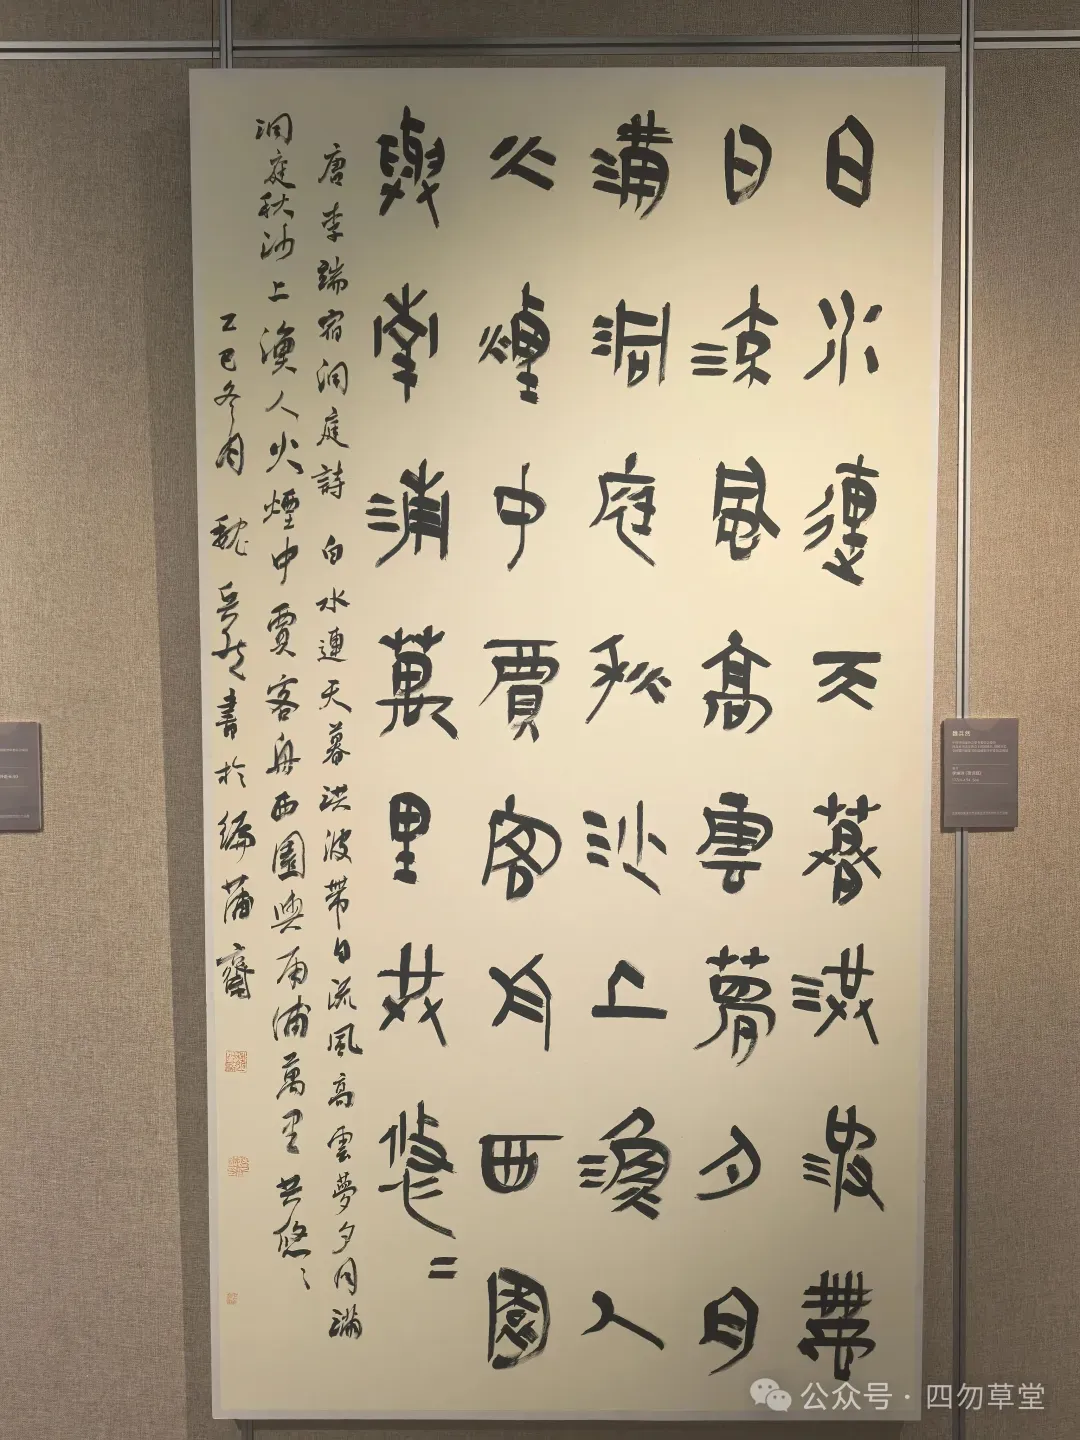 白水連天暮洪波帶
日流風高雲夢夕月
滿洞庭秋沙上漁人
火煙中賈客舟西園
與南浦萬里共悠〻
唐李端宿洞庭詩 白水連天暮洪波帶日流風高雲夢夕月滿
洞庭秋沙上漁人火煙中賈客舟西園與南浦萬里共悠〻
乙巳冬月 魏 書於編蒲齋
公众号 · 四勿草堂